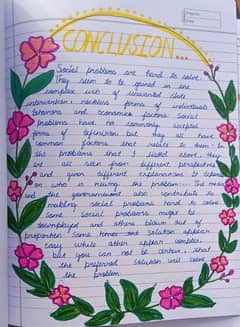 CONCLUSION...
Social problems are hard to solve.
They seem to be spread in the
complex web of unwanted state
intervention reckless forms of individual
behaviours and economics factors. Social
problems have no commonly accepted
forms of definition but may all have
common factors that relate to them. In
the problems that I listed above, they
are all seen from different perspectives
and given different explanations to depend
on who is viewing the problem. The media
and the government also contribute to
making social problems hard to solve.
Some social problems might be
downplayed and others blown out of
proportion. Some times one solution appear
easy while other appear complex
but you can not be certain that
the preferred solution will solve
the problem.